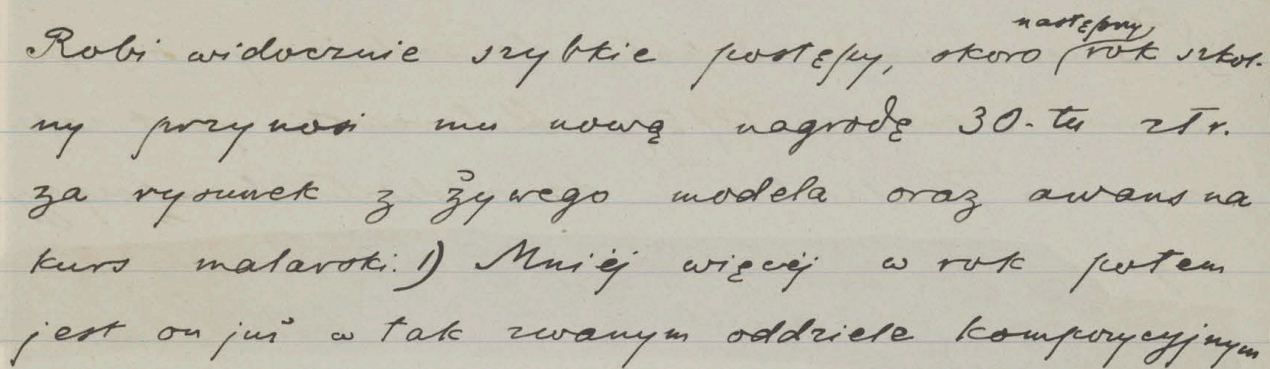 Robi widocznie szybkie postępy, skoro następny rok szkol-
ny przynosi mu nową nagrodę 30-tu złr.
za rysunek z żywego modela oraz awans na
kurs malarski. 1) Mniej więcej w rok potem
jest on już w tak zwanym oddziele kompozycyjnym